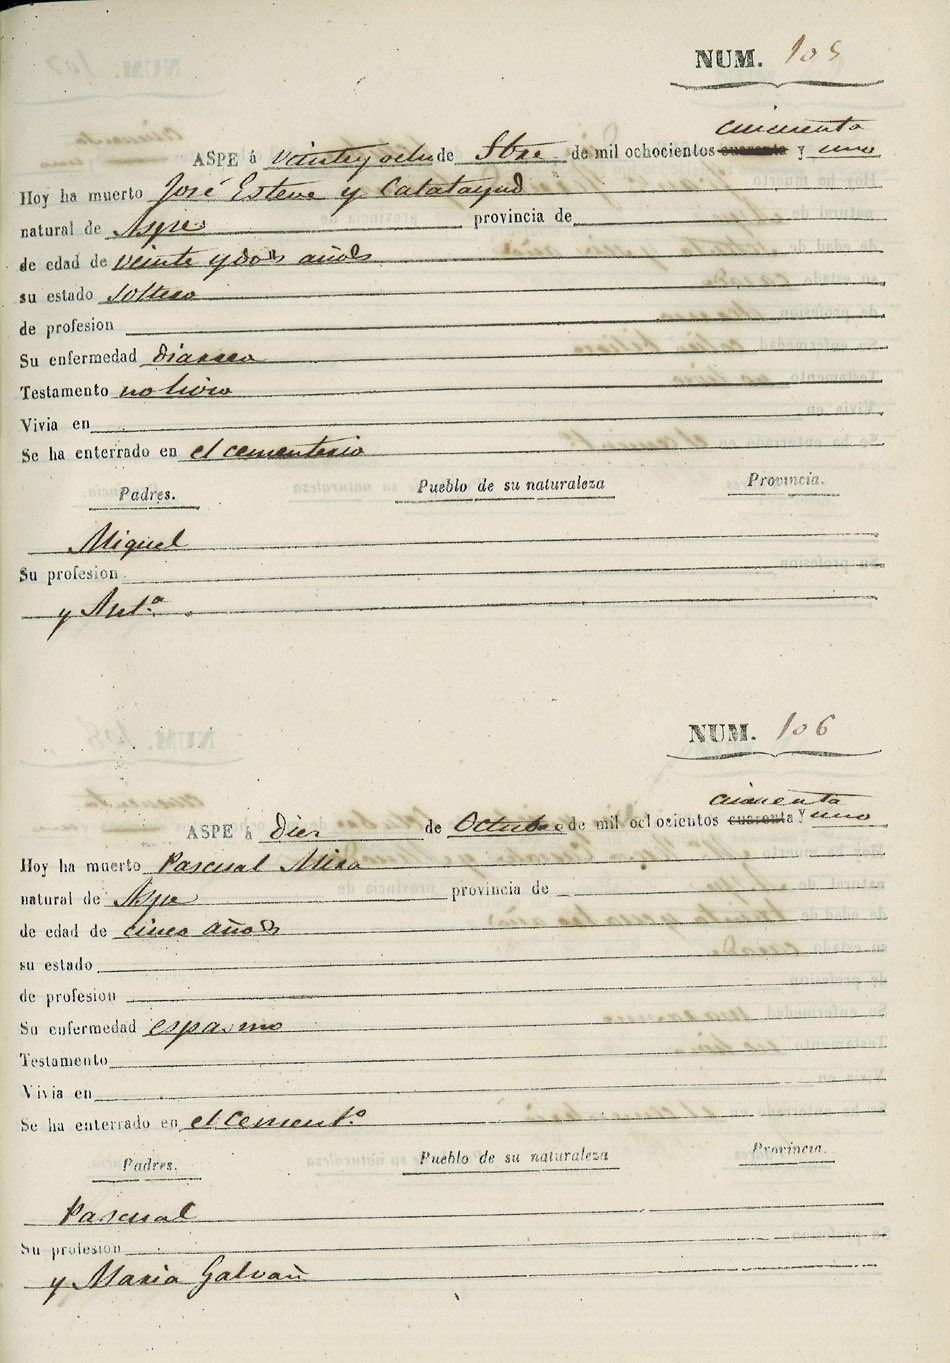 NUM. 105
cincuenta
ASPE á veinteyocho de Sbre de mil ochocientos cuarenta y uno
Hoy ha muerto José Esteve y Calatayud
natural de Aspe provincia de
de edad de veinte y dos años
su estado soltero
de profesion
Su enfermedad diarrea
Testamento no hizo
Vivia en
Se ha enterrado en el cementerio
Padres. Pueblo de su naturaleza Provincia.
Miguel
Su profesion
y Ant.ª
NUM. 106
cincuenta
ASPE á Diez de Octubre de mil ochocientos cuarenta y uno
Hoy ha muerto Pascual Mira
natural de Aspe provincia de
de edad de cinco años
su estado
de profesion
Su enfermedad espasmo
Testamento
Vivia en
Se ha enterrado en el cement.º
Padres. Pueblo de su naturaleza Provincia.
Pascual
Su profesion
y Maria Galvañ